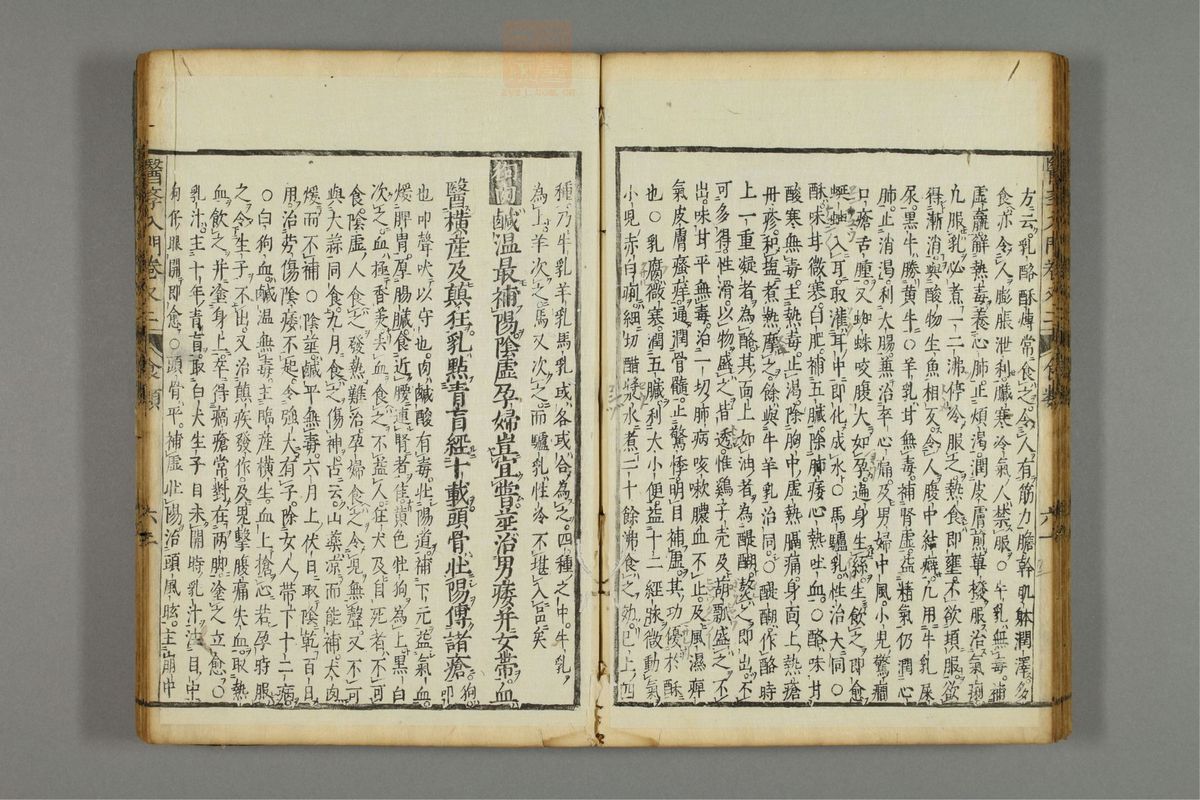 方云乳酪酥常食之令人有筋力膽幹肌躰潤澤多
食亦令人膨脹泄利臟寒冷氣人禁服○牛乳無毒補
虚羸解熱毒養心肺止煩渇潤皮膚煎蓽撥服治氣痢
凡服乳必煮一二沸停冷服之熱食即壅不欲頓服欲
得漸消與酸物生魚相反令人腹中結癖凡用牛乳屎
尿黒牛勝黄牛○羊乳甘無毒補腎虚益精氣仍潤心
肺止消渇利大腸薫治卒心痛及男婦中風小兒驚癇
口瘡舌腫又蜘蛛咬腹大如孕遍身生絲生飲之即愈
蚰蜒入耳取灌耳中即化成水○馬驢乳性治大同○
酥味甘微寒白肥補五臟除肺痿心熱吐血○酪味甘
酸寒無毒主熱毒止渇除胸中虚熱膈痛身面上熱瘡
丹疹和塩煮熱摩之餘與牛羊乳治同○醍醐作酪時
上一重凝者為酪其面上如油者為醍醐熬之即出不
可多得性滑以物盛之皆透惟鷄子壳及葫瓢盛之不
出味甘平無毒治一切肺病咳嗽膿血不止及風濕痺
氣皮膚瘙痒通潤骨髓止驚悸明目補虚其功優於酥
也○乳腐微寒潤五臟利大小便益十二經脉微動氣
小兒赤白痢細切醋漿水煮二十餘沸食之効已上四
種乃牛乳羊乳馬乳或各或合為之四種之中牛乳
為上羊次之馬又次之而驢乳性冷不堪入品矣
狗肉鹹温最補陽陰虚孕婦豈宜嘗莖治男痿并女帶血
醫横産及顛狂乳點青盲經十載頭骨壯陽傅諸瘡狗叩
也叩聲吠以守也肉鹹酸有毒壯陽道補下元益氣血
煖脾胃厚腸臓食近腰連腎者佳黄色牡狗為上黒白
次之血極香炙去血食之不益人在犬及自死者不可
食陰虚人食之發熱難治孕婦食之令兒無聲又不可
與大蒜同食九月食之傷神占云山藥凉而能補犬肉
煖而不補○陰莖鹹平無毒六月上伏日取陰乾百日
用治労傷陰痿不起令強大有子除女人帶下十二病
○白狗血鹹温無毒主臨産横生血上搶心若孕時服
之令生子不出又治顛疾發作及鬼撃腹痛失血取熱
血飲之并塗身上卒得瘑瘡常對在兩脚塗之立愈○
乳汁主十年青盲取白犬生子目未開時乳汁注目中
狗仔眼開即愈○頭骨平補虚壯陽治頭風眩主崩中